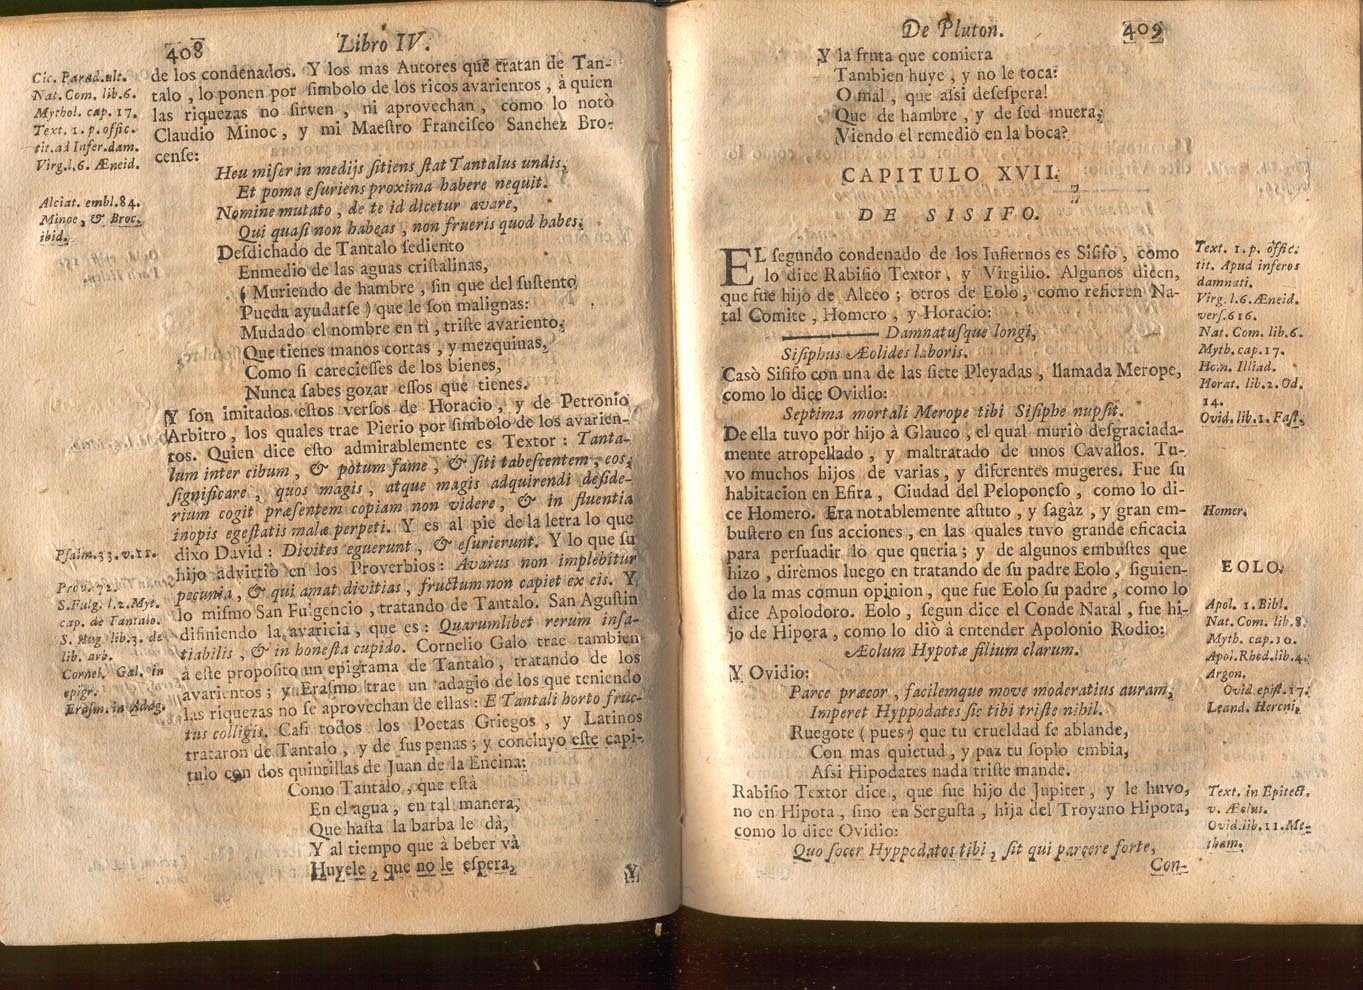 408
Libro IV.
Cic. Parad. ult.
Nat. Com. lib. 6.
Mythol. cap. 17.
Text. 1. p. offic.
tit. ad Infer. dam.
Virg. l. 6. Æneid.
Alciat. embl. 84.
Minoe, & Broc.
ibid.
Psalm. 33. v. 11.
S. Fulg. l. 2. Myt.
cap. de Tantalo.
lib. 3. de
lib. arb.
Cornel. Gal. in
epigr.
Erasm. in Adag.
de los condenados. Y los mas Autores que tratan de Tan-
talo, lo ponen por simbolo de los ricos avarientos, à quien
las riquezas no sirven, ni aprovechan, como lo notò
Claudio Minoc, y mi Maestro Francisco Sanchez Bro-
cense:
Heu miser in medijs sitiens stat Tantalus undis,
Et poma esuriens proxima habere nequit.
Nomine mutato, de te id dicetur avare,
Qui quasi non habeas, non frueris quod habes.
Desdichado de Tantalo sediento
Enmedio de las aguas cristalinas,
( Muriendo de hambre, sin que del sustento
Pueda ayudarse ) que le son malignas:
Mudado el nombre en ti, triste avariento,
Que tienes manos cortas, y mezquinas,
Como si careciesses de los bienes,
Nunca sabes gozar essos que tienes.
Y son imitados estos versos de Horacio, y de Petronio
Arbitro, los quales trae Pierio por simbolo de los avarien-
tos. Quien dice esto admirablemente es Textor: Tanta-
lum inter cibum, & potum fame, & siti tabescentem, eos
significare, quos magis, atque magis adquirendi deside-
rium cogit præsentem copiam non videre, & in fluentia
inopis egestatis malæ perpeti. Y es al pie de la letra lo que
dixo David: Divites eguerunt, & esurierunt. Y lo que su
hijo advirtiò en los Proverbios: Avarus non implebitur
pecunia, & qui amat divitias, fructum non capiet ex eis. Y
lo mismo San Fulgencio, tratando de Tantalo. San Agustin
difiniendo la avaricia, que es: Quarumlibet rerum insa-
tiabilis, & in honesta cupido. Cornelio Galo trae tambien
à este proposito un epigrama de Tantalo, tratando de los
avarientos; y Erasmo trae un adagio de los que teniendo
las riquezas no se aprovechan de ellas: E Tantali horto fruc-
tus colligis. Casi todos los Poetas Griegos, y Latinos
trataron de Tantalo, y de sus penas; y concluyo este capi-
tulo con dos quintillas de Juan de la Encina:
Como Tantalo, que està
En el agua, en tal manera,
Que hasta la barba le dà,
Y al tiempo que à beber và
Huyele, que no le espera,
Y
De Pluton.
409
Y la fruta que comiera
Tambien huye, y no le toca:
O mal, que assi desespera!
Que de hambre, y de sed muera,
Viendo el remedio en la boca?
CAPITULO XVII.
DE SISIFO.
EL segundo condenado de los Infiernos es Sisifo, como
lo dice Rabisio Textor, y Virgilio. Algunos dicen,
que fue hijo de Alceo; otros de Eolo, como refieren Na-
tal Comite, Homero, y Horacio:
Damnatusque longi,
Sisiphus Æolides laboris.
Casò Sisifo con una de las siete Pleyadas, llamada Merope,
como lo dice Ovidio:
Septima mortali Merope tibi Sisiphe nupsit.
De ella tuvo por hijo à Glauco, el qual muriò desgraciada-
mente atropellado, y maltratado de unos Cavallos. Tu-
vo muchos hijos de varias, y diferentes mugeres. Fue su
habitacion en Efira, Ciudad del Peloponeso, como lo di-
ce Homero. Era notablemente astuto, y sagàz, y gran em-
bustero en sus acciones, en las quales tuvo grande eficacia
para persuadir lo que queria; y de algunos embustes que
hizo, dirèmos luego en tratando de su padre Eolo, siguien-
do la mas comun opinion, que fue Eolo su padre, como lo
dice Apolodoro. Eolo, segun dice el Conde Natal, fue hi-
jo de Hipora, como lo diò à entender Apolonio Rodio:
Æolum Hypotæ filium clarum.
Y Ovidio:
Parce præcor, facilemque move moderatius auram,
Imperet Hyppodates sic tibi triste nihil.
Ruegote ( pues ) que tu crueldad se ablande,
Con mas quietud, y paz tu soplo embia,
Assi Hipodates nada triste mande.
Rabisio Textor dice, que fue hijo de Jupiter, y le huvo,
no en Hipota, sino en Sergusta, hija del Troyano Hipota,
como lo dice Ovidio:
Quo socer Hyppodatos tibi, sit qui parcere forte,
Con-
Text. 1. p. offic.
tit. Apud inferos
damnati.
Virg. l. 6. Æneid.
vers. 616.
Nat. Com. lib. 6.
Myth. cap. 17.
Hom. Illiad.
Horat. lib. 2. Od.
14.
Ovid. lib. 1. Fast.
Homer.
EOLO.
Apol. 1. Bibl.
Nat. Com. lib. 8.
Myth. cap. 10.
Apol. Rhod. lib. 4.
Argon.
Ovid epist. 17.
Leand. Heroni.
Text. in Epitect.
v. Æolus.
Ovid. lib. 11. Me-
tham.